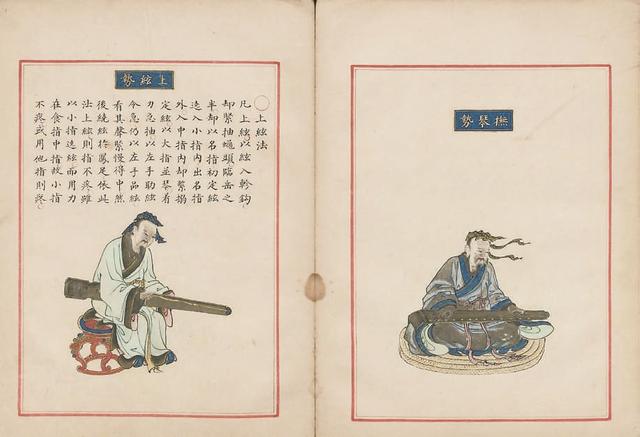 撫琴勢
上絃勢
○上絃法
凡上絃以絃入軫鈎
却緊抽過頭臨岳之
半却以名指初定絃
遶入小指内出名指
外入中指内却緊搦
定絃以大指並琴着
力急抽以左手助絃
令急仍以左手品絃
看其聲緊慢得中然
後繞絃於鳳足依此
法上絃則指不疼雖
以小指遶絃而用力
在食指中指故小指
不疼或用他指則疼